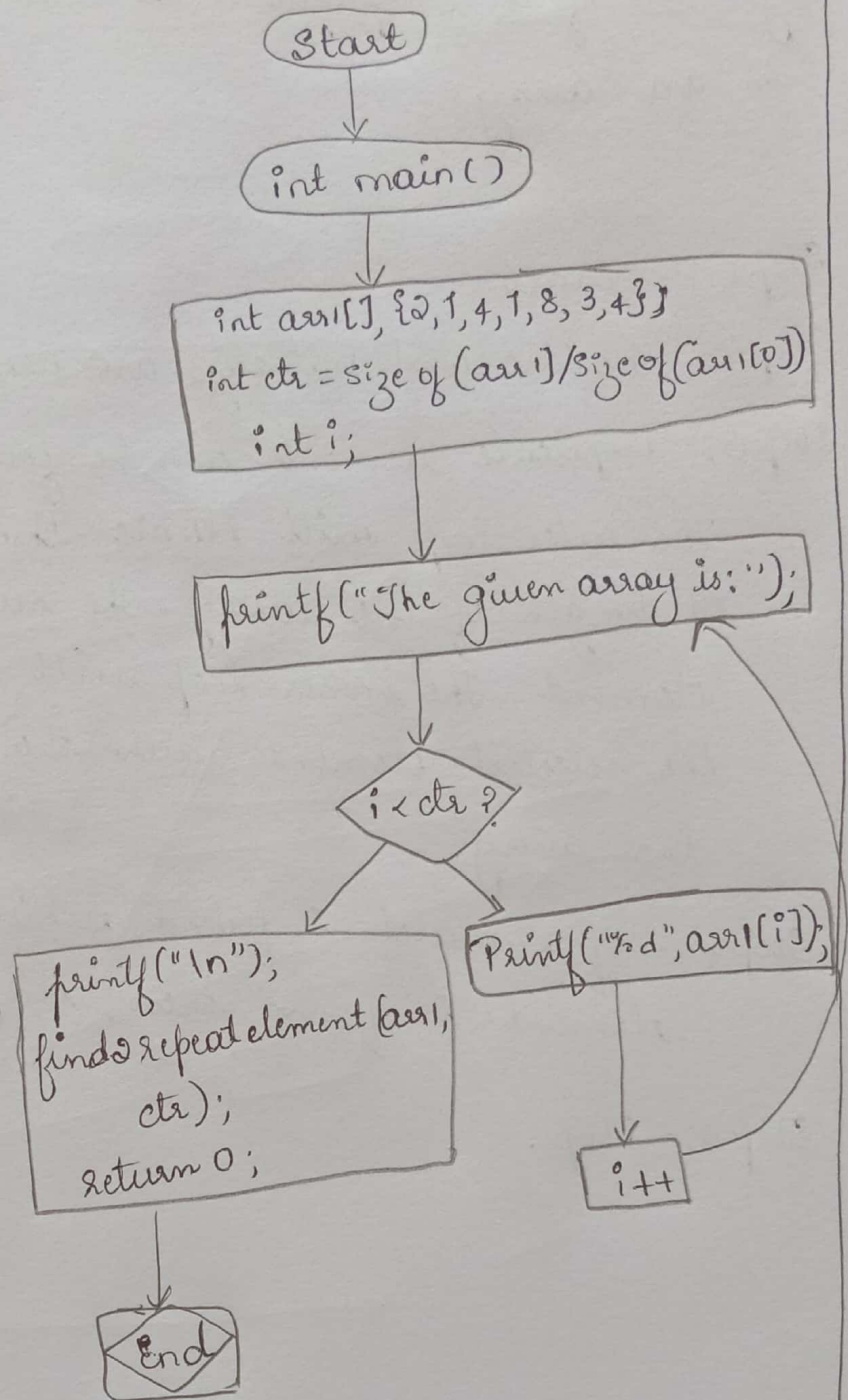 Start
int main()
int arr1[], {2,1,4,1,8,3,4}}
int ctr = size of (arr1]/size of (arr1[0])
int i;
printf("The given array is:");
i < ctr ?
printf("\n");
find2repeatelement (arr1,
ctr);
return 0;
Printf("%d", arr1[i]);
i++
End